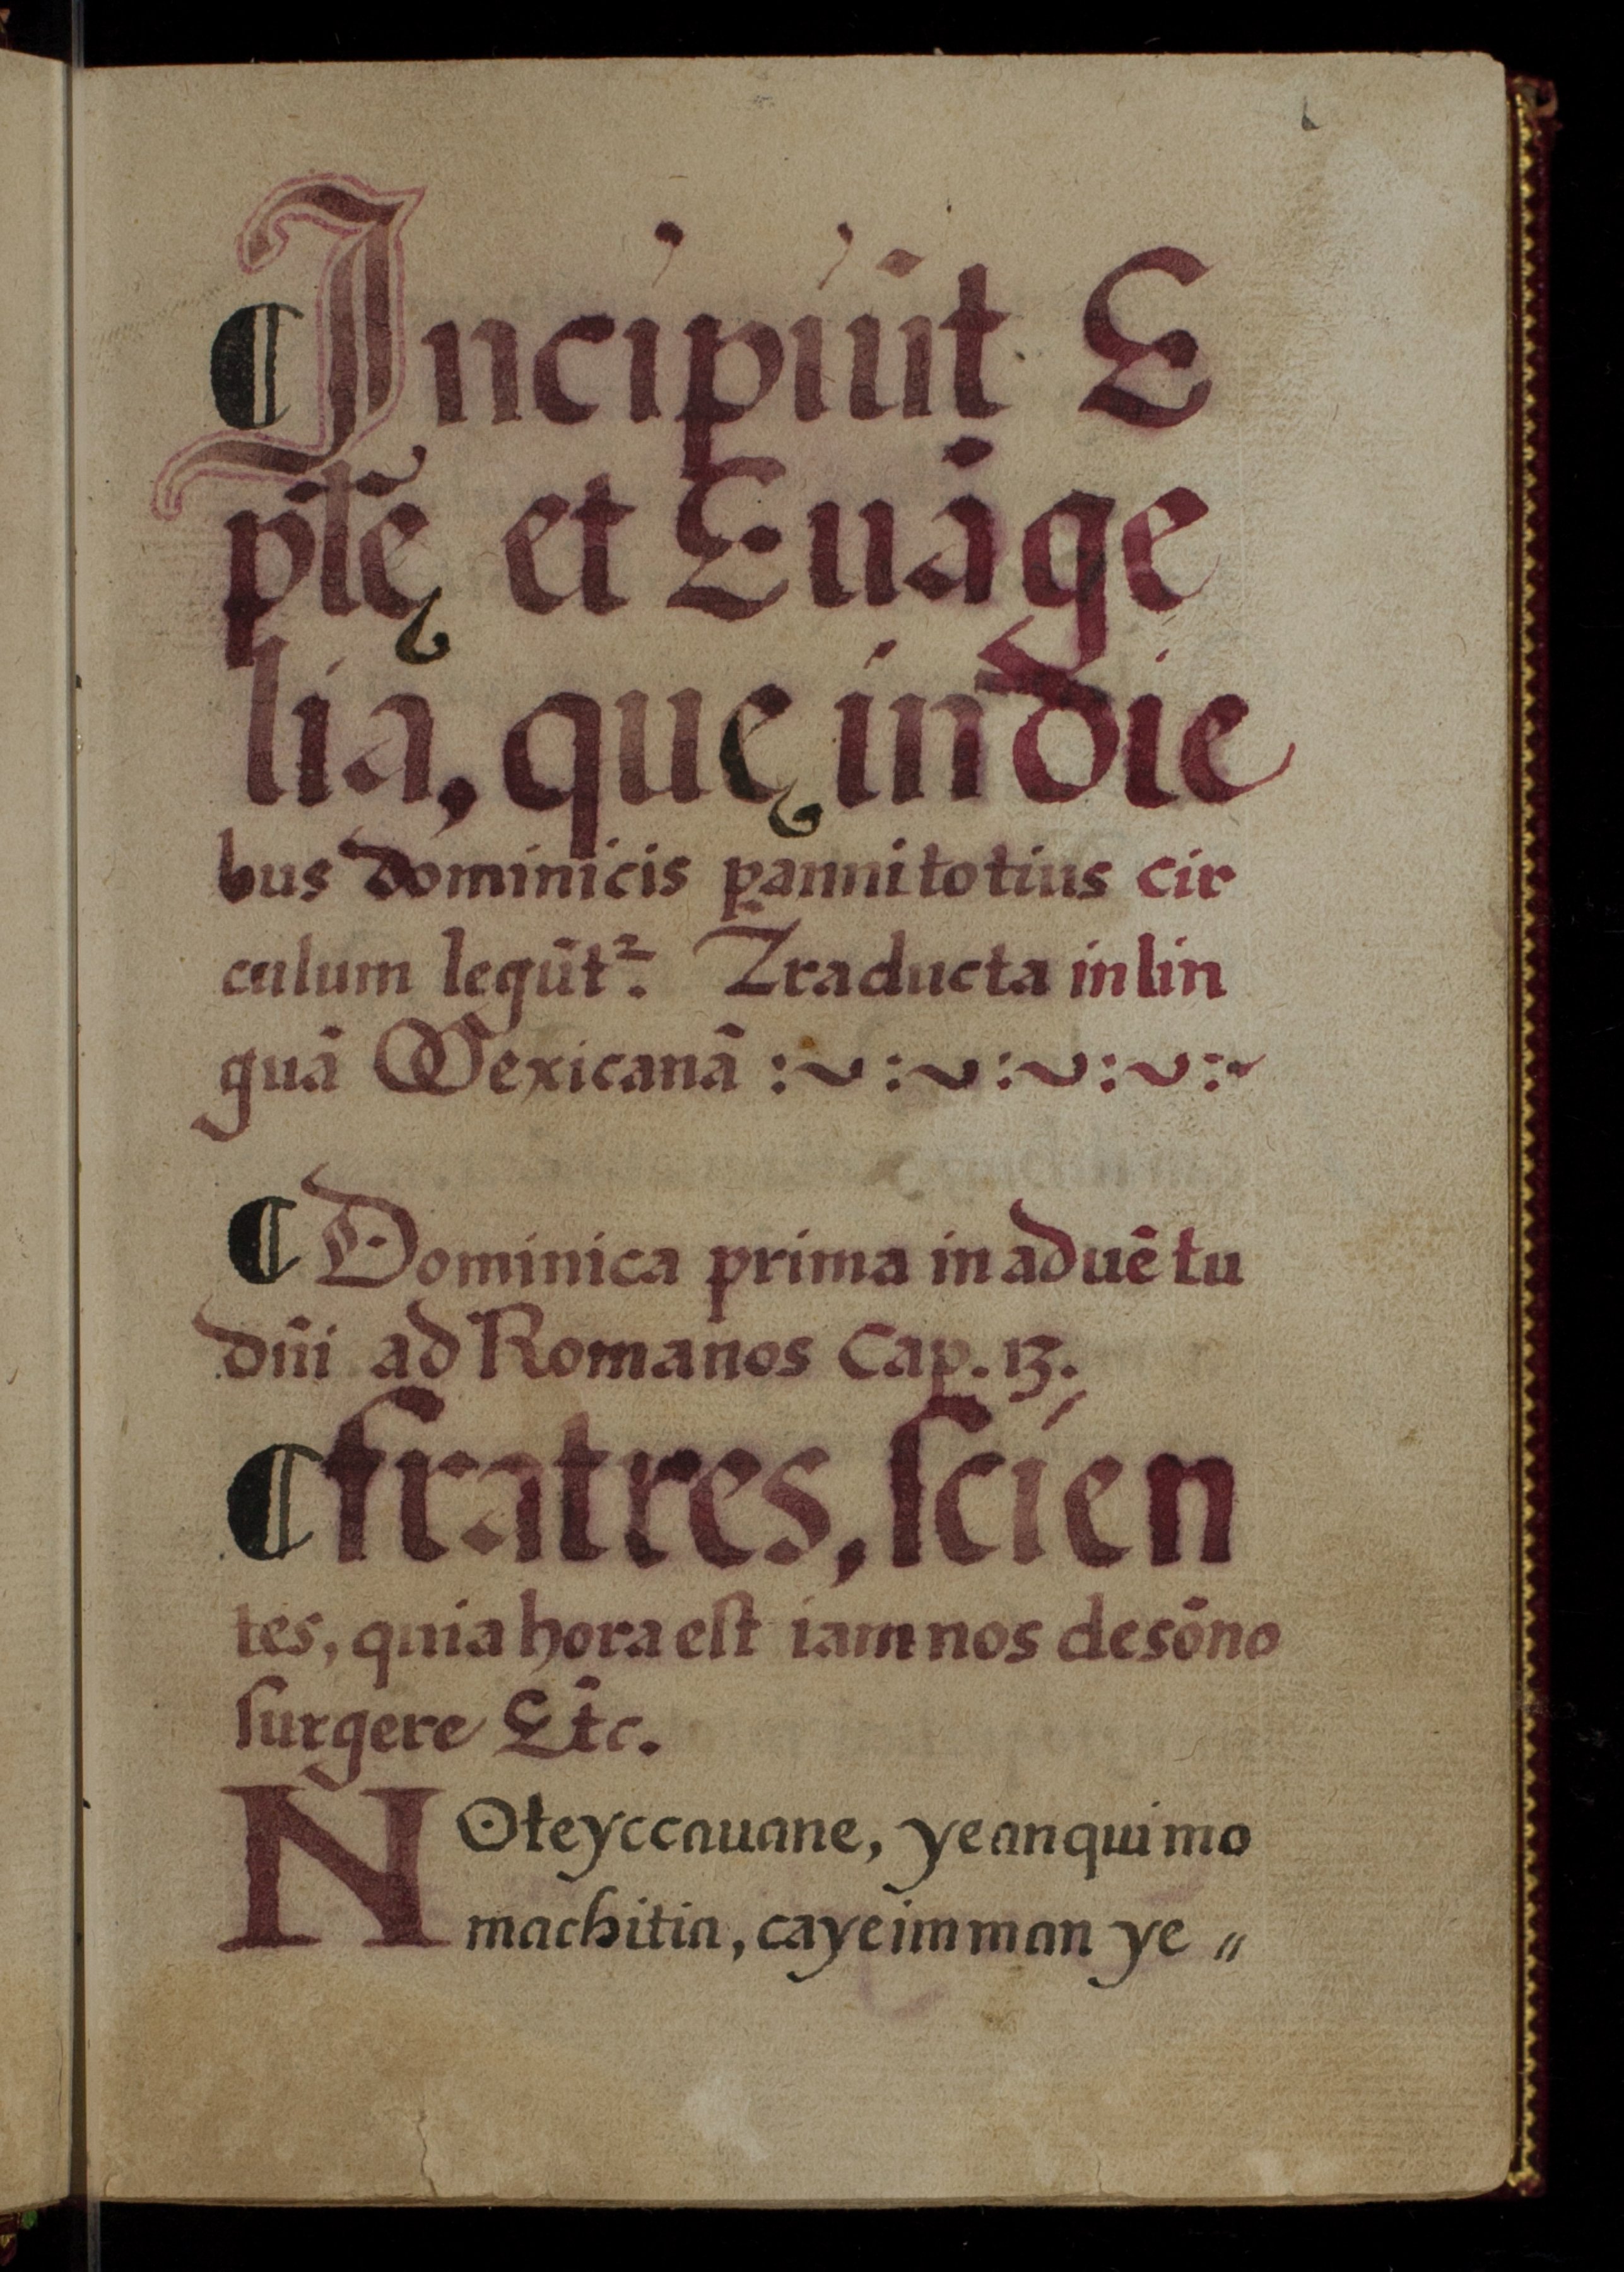 ¶ Incipiūt E
pl̄ę et Euāge
lia, quę in die
bus dominicis p̱ anni totius cir
culum legūtᷣ. Traducta in lin
guā Mexicanā :~:~:~:~:~
¶ Dominica prima in aduētu
dñi ad Romanos Cap. 13.
¶ fratres, ſcien
tes, quia hora eſt iam nos de sōno
ſurgere Etc̄.
NOteyccauane, ye anqui mo
machitia, ca ye imman ye〃